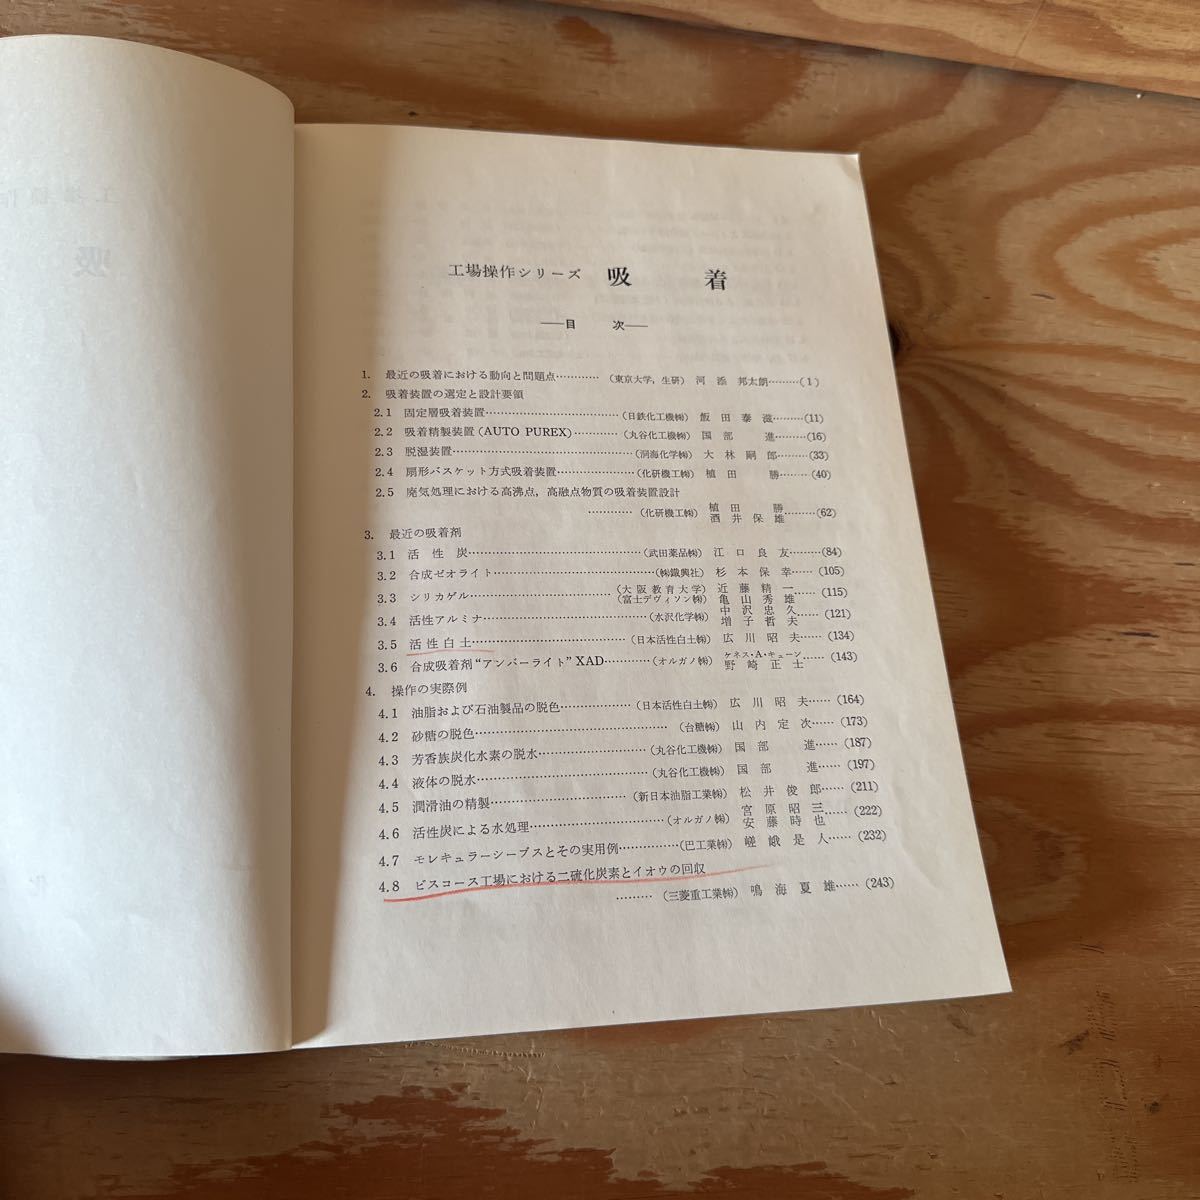 工場操作シリーズ 吸着
―目次―
1. 最近の吸着における動向と問題点…………(東京大学,生研) 河添邦太朗………(1)
2. 吸着装置の選定と設計要領
2.1 固定層吸着装置…………………………………(日鉄化工機㈱) 飯田泰滋………(11)
2.2 吸着精製装置(AUTO PUREX)…………(丸谷化工機㈱) 国部進………(16)
2.3 脱湿装置……………………………………………(洞海化学㈱) 大林嗣郎………(33)
2.4 扇形バスケット方式吸着装置…………………(化研機工㈱) 植田勝………(40)
2.5 廃気処理における高沸点,高融点物質の吸着装置設計
…………(化研機工㈱) 植田勝
酒井保雄………(62)
3. 最近の吸着剤
3.1 活性炭…………………………………………(武田薬品㈱) 江口良友………(84)
3.2 合成ゼオライト………………………………………(㈱鐵興社) 杉本保幸……(105)
3.3 シリカゲル…………………………………(大阪教育大学) 近藤精一
(富士デヴィソン㈱) 亀山秀雄……(115)
3.4 活性アルミナ………………………………………(水沢化学㈱) 中沢忠久
増子哲夫……(121)
3.5 活性白土………………………………………(日本活性白土㈱) 広川昭夫……(134)
3.6 合成吸着剤“アンバーライト”XAD…………(オルガノ㈱) ケネス・A・キューン
野崎正士……(143)
4. 操作の実際例
4.1 油脂および石油製品の脱色………………(日本活性白土㈱) 広川昭夫……(164)
4.2 砂糖の脱色………………………………………………(台糖㈱) 山内定次……(173)
4.3 芳香族炭化水素の脱水…………………………(丸谷化工機㈱) 国部進……(187)
4.4 液体の脱水………………………………………(丸谷化工機㈱) 国部進……(197)
4.5 潤滑油の精製………………………………(新日本油脂工業㈱) 松井俊郎……(211)
4.6 活性炭による水処理………………………………(オルガノ㈱) 宮原昭三
安藤時也……(222)
4.7 モレキュラーシーブスとその実用例……………(巴工業㈱) 嵯峨是人……(232)
4.8 ビスコース工場における二硫化炭素とイオウの回収
………(三菱重工業㈱) 鳴海夏雄……(243)